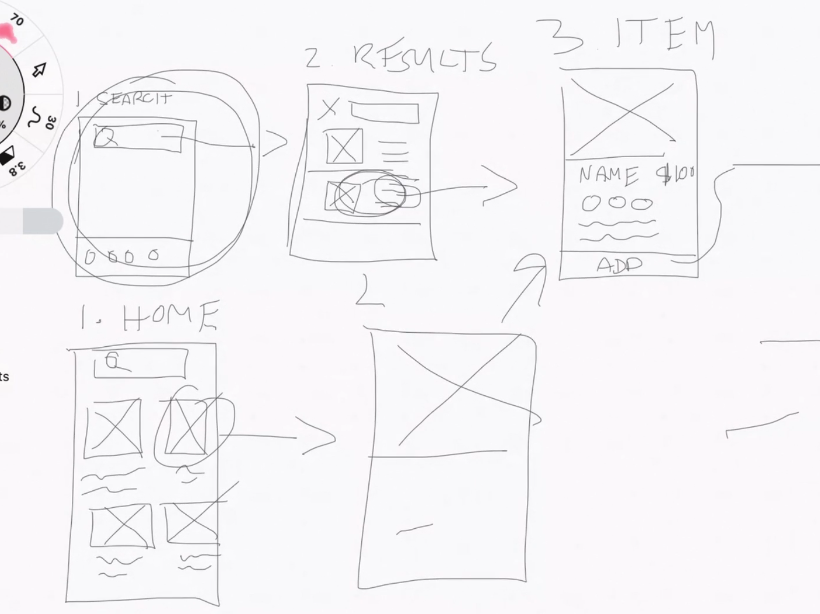 70
30
3.8
%
1. SEARCH
2. RESULTS
3. ITEM
X
NAME $100
ADD
1. HOME
2
ts